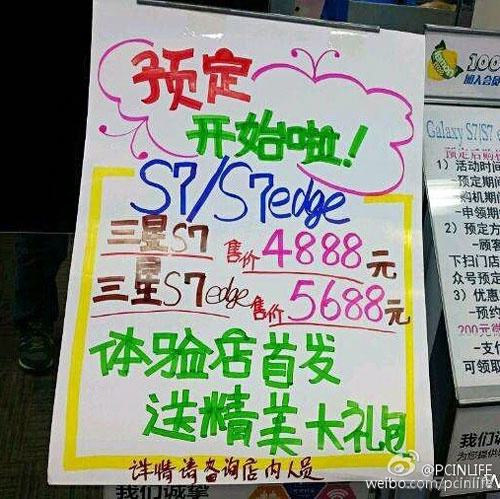 预定
开始啦!
S7/S7edge
三星S7 售价4888元
三星S7edge售价5688元
体验店首发
送精美大礼包
详情请咨询店内人员
100
加入会员
Galaxy S7/S7
预定后购
1）活动时间
-预定期间
购机期间
-申领期
2）预定方
-顾客
下扫门店
众号预定
3）优惠
-预约
200元
-支付
可领取
我们诚
为您提供
我们诚挚
@PCINLIFE
weibo.com/pcinlife